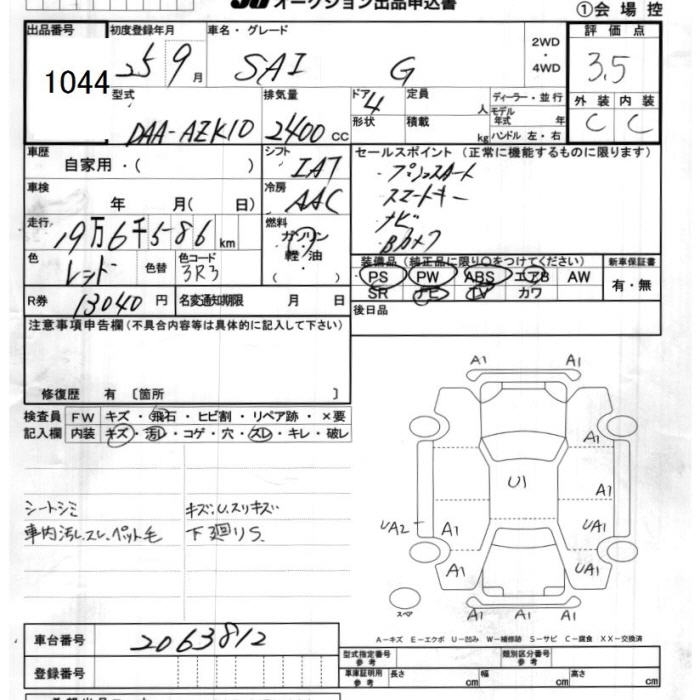 オークション出品申込書
①会場控
出品番号 初度登録年月 車名・グレード 2WD ・ 4WD 評価点
1044 25 9月 SAI G 3.5
型式 排気量 ドア 定員 人 ディーラー・並行 外装 内装
DAA-AZK10 2400 cc 4 モデル年式 年 C C
形状 積載 kg ハンドル 左・右
車歴 シフト セールスポイント (正常に機能するものに限ります)
自家用・( ) IAT ・プッシュスタート
車検 冷房 スマートキー
年 月( 日) AAC ナビ
走行 燃料 Bカメラ
19万6千586km ガソリン
軽油
( )
色 色替 色コード 装備品 (純正品に限り○をつけてください) 新車保証書
レッド 3R3 PS PW ABS エアB AW 有・無
SR ナビ TV カワ
R券 13040円 名変通知期限 月 日 後日品
注意事項申告欄(不具合内容等は具体的に記入して下さい)
修復歴 有 〔箇所 〕
検査員 FW キズ・飛石・ヒビ割・リペア跡・×要
記入欄 内装 キズ・汚レ・コゲ・穴・スレ・キレ・破レ
シートシミ キズ.U.スリキズ
車内汚レ.スレ.ペット毛 下廻りS
A1 A1
A1
U1 A1
UA2 A1 UA1
A1 UA1
スペア A1 A1 A1
A－キズ E－エクボ U－凹み W－補修跡 S－サビ C－腐食 XX－交換済
車台番号 2063812
型式指定番号 参考 類別区分番号 参考
登録番号 車庫証明用 参考 長さ cm 幅 cm 高さ cm